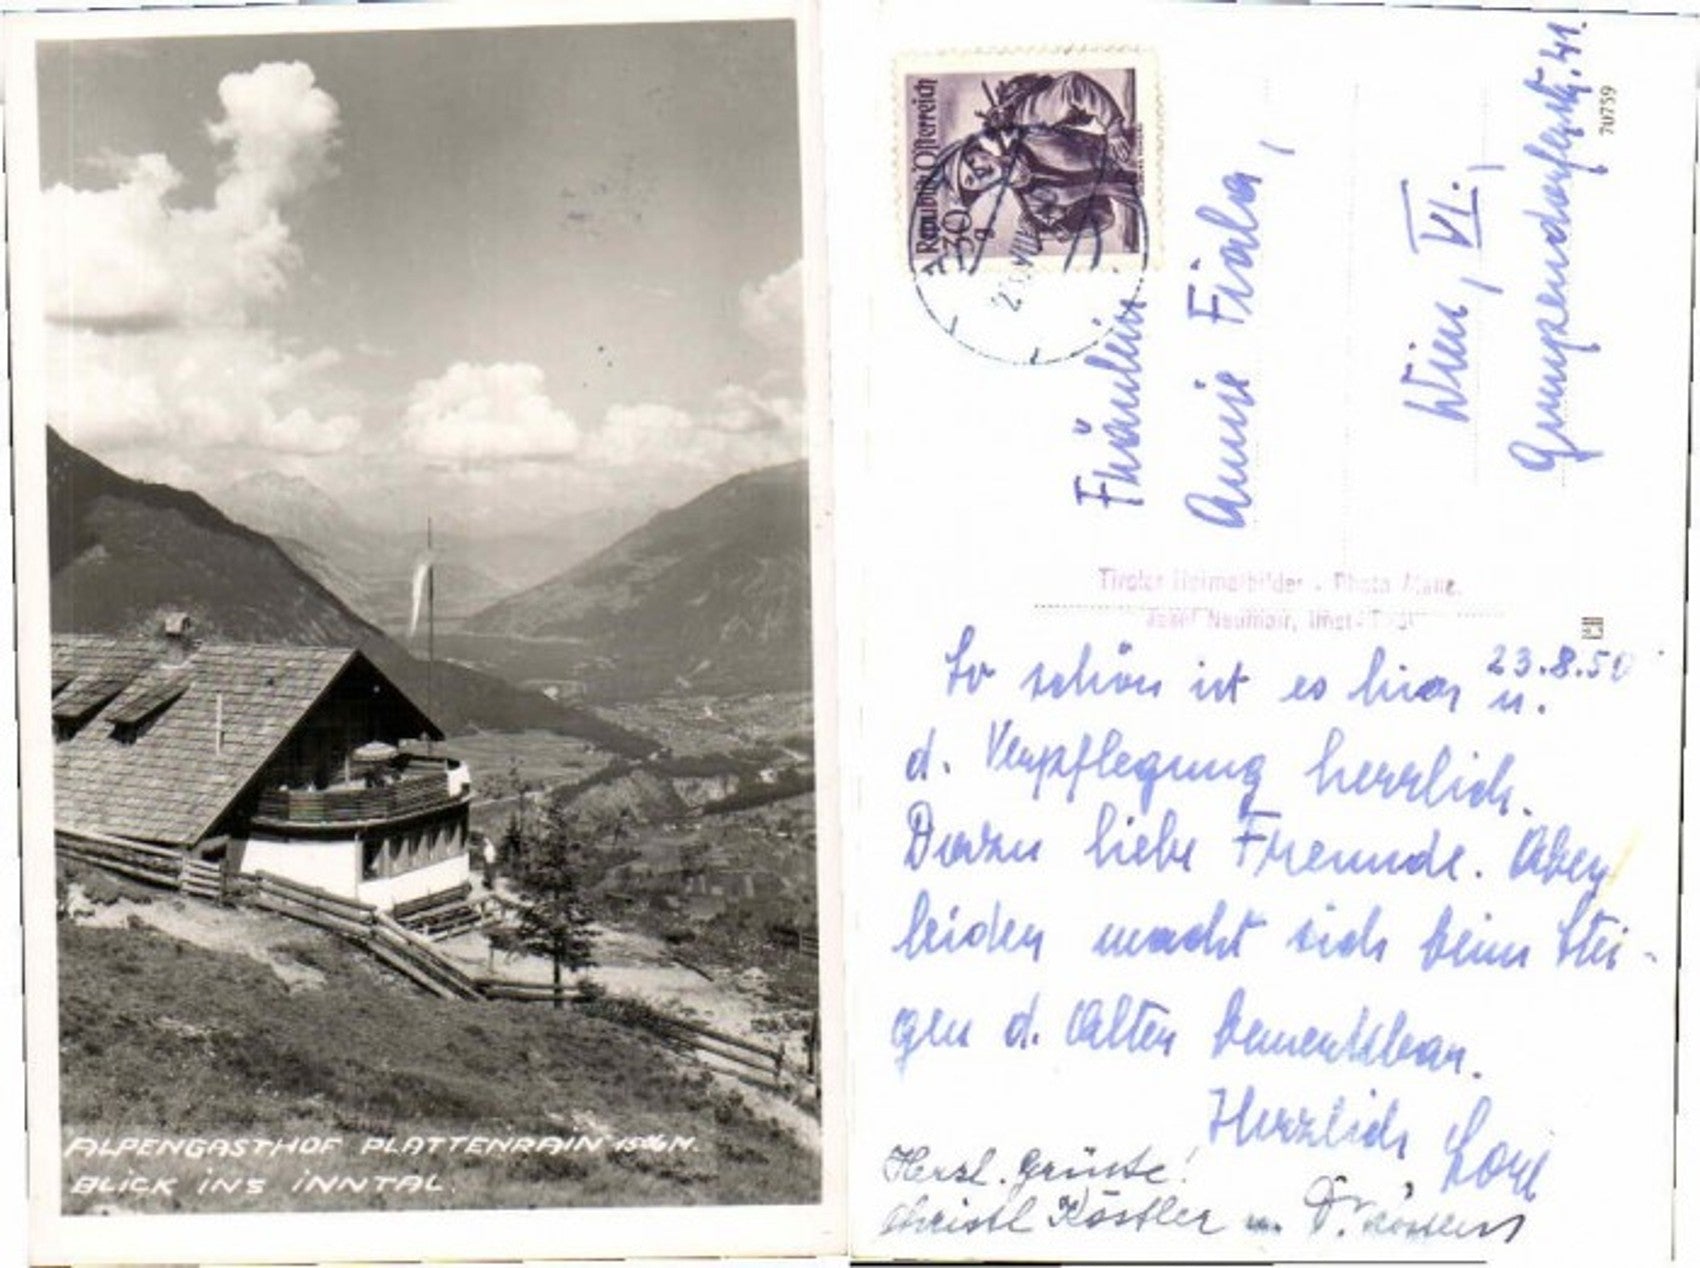 ALPENGASTHOF PLATTENRAIN M.
BLICK INS INNTAL.
Republik Österreich
30 g
Fräulein
Annie Fiala,
Wien, VI.,
Gumpendorferstr. 41.
70759
Tiroler Heimatbilder - Photo
Josef Neumair, Imst-Tirol
23.8.50
So schön ist es hier u.
d. Verpflegung herrlich.
Dazu liebe Freunde. Aber
leider macht sich beim Stei-
gen d. Alter bemerkbar.
Herzlich
Herzl. Grüsse!
Christl Köstler u. Dr.